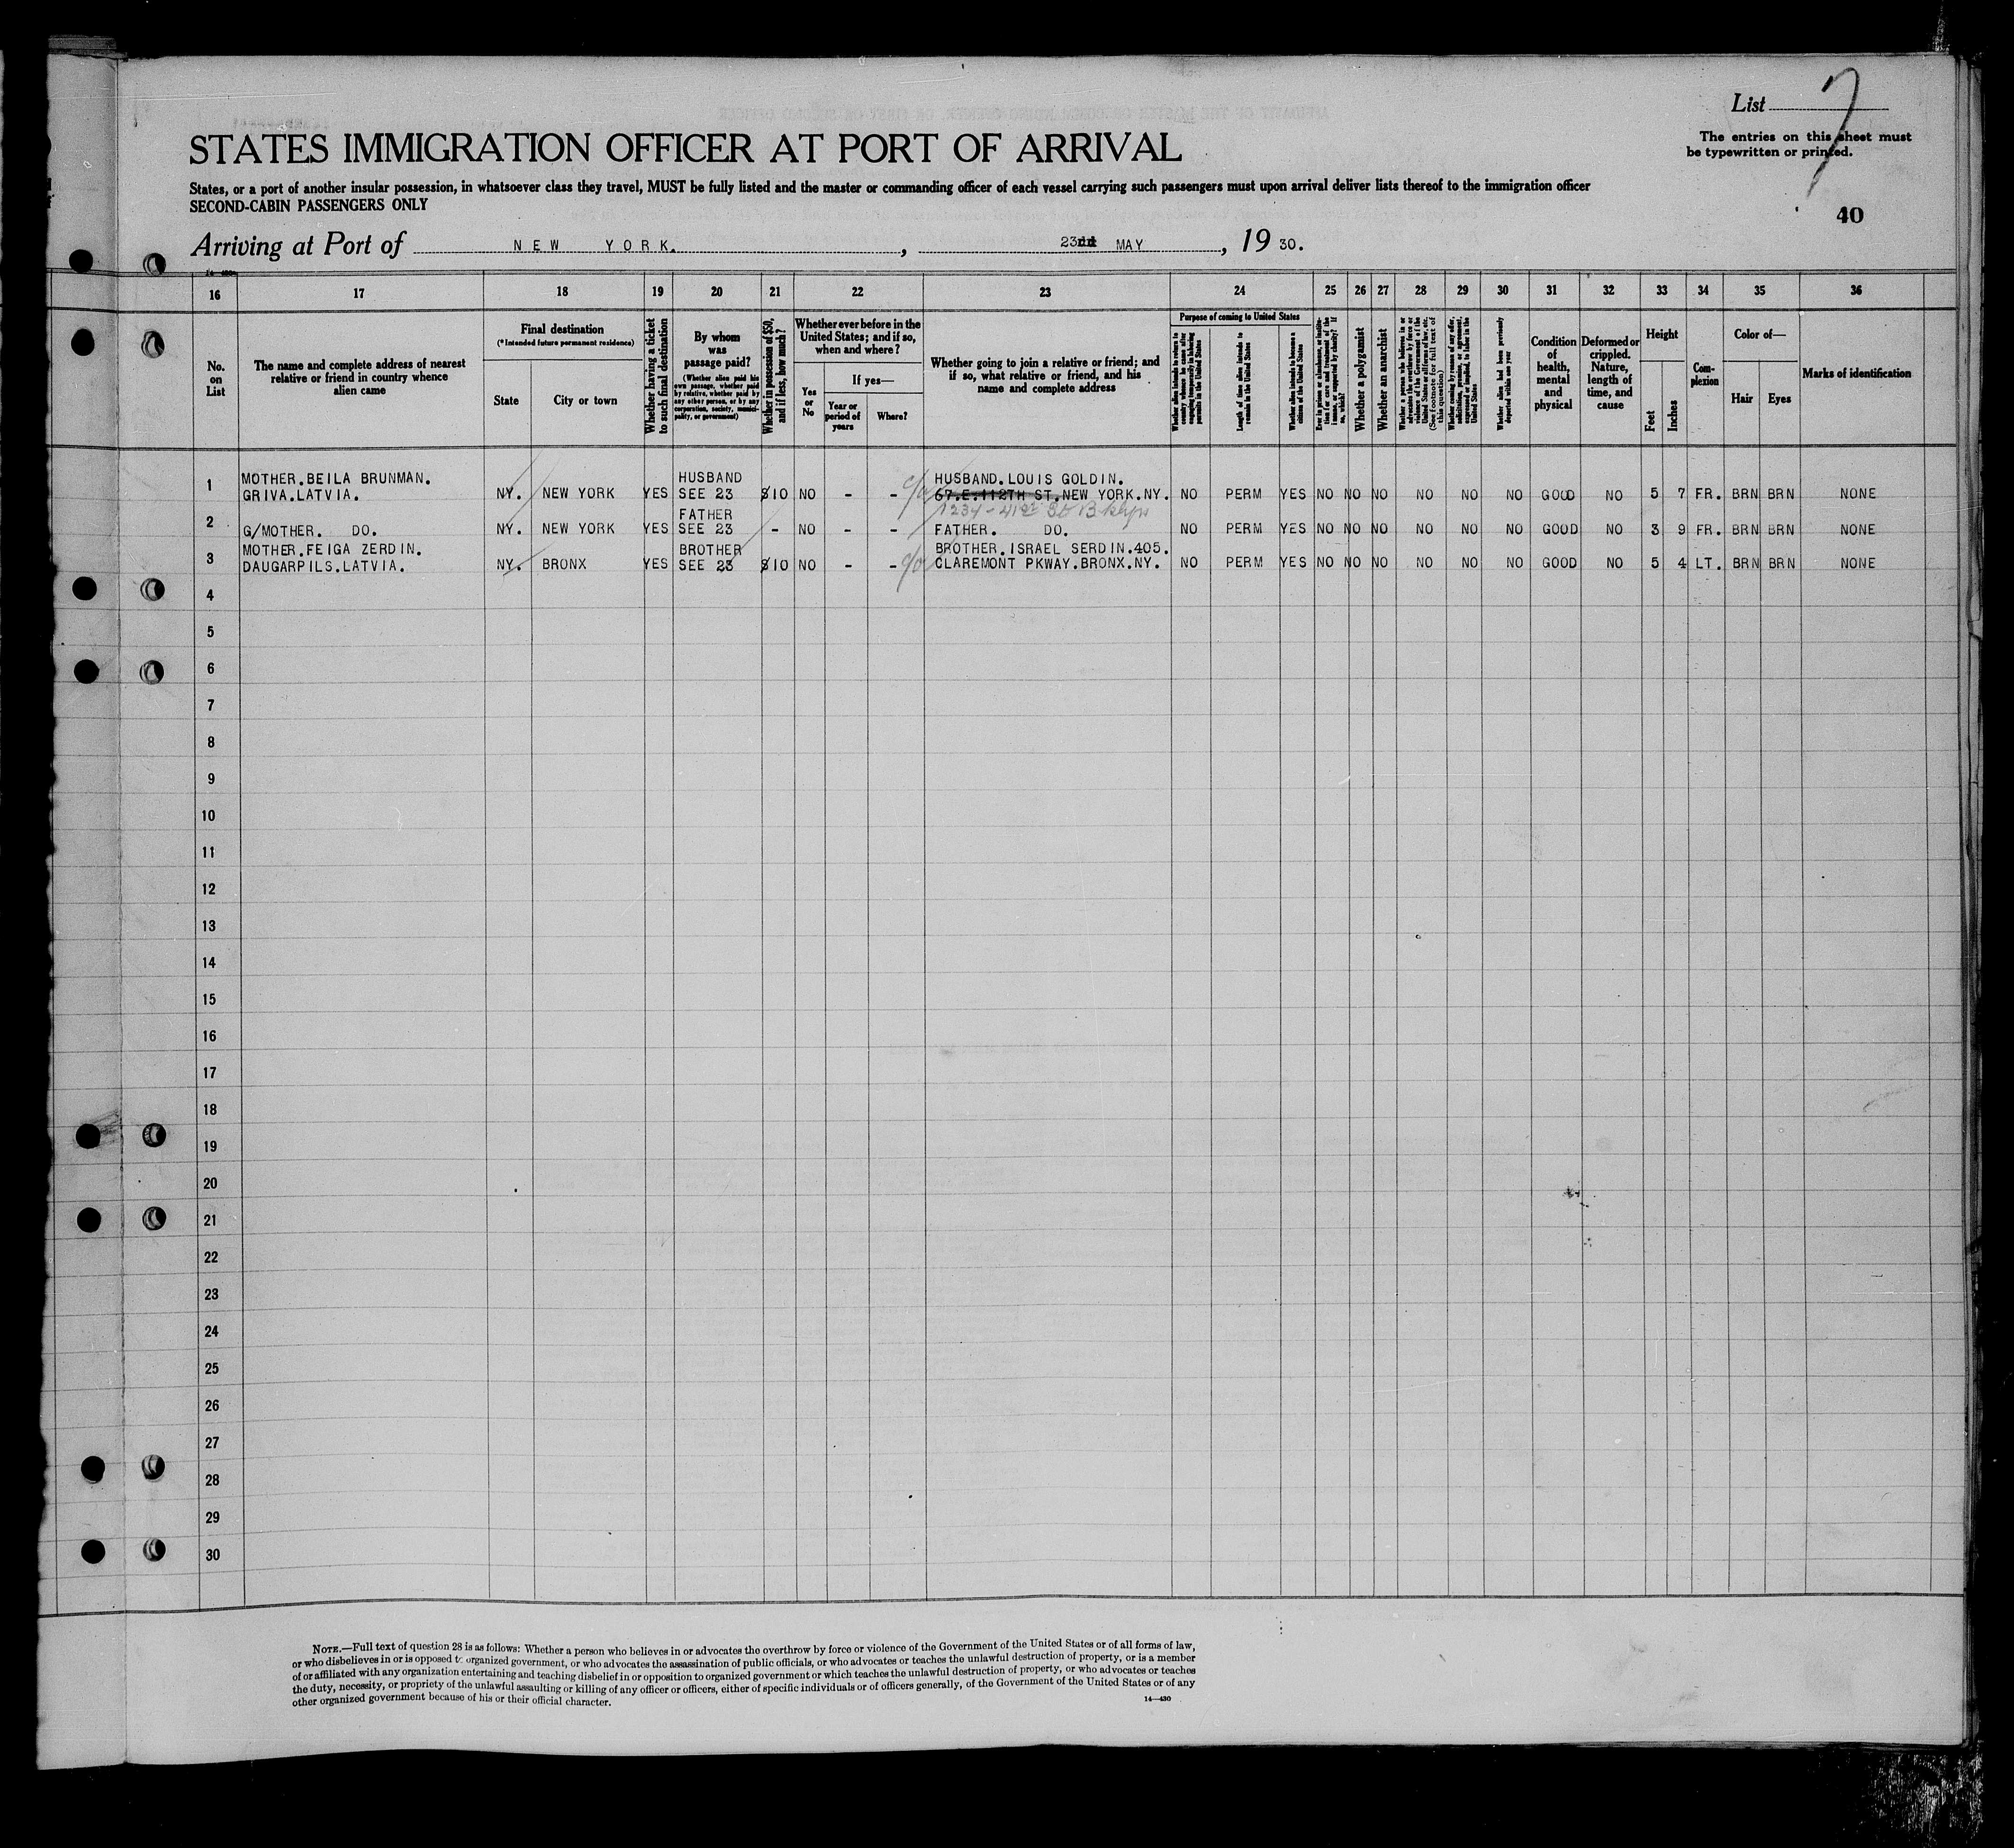 List 7
The entries on this sheet must
be typewritten or printed.
STATES IMMIGRATION OFFICER AT PORT OF ARRIVAL
States, or a port of another insular possession, in whatsoever class they travel, MUST be fully listed and the master or commanding officer of each vessel carrying such passengers must upon arrival deliver lists thereof to the immigration officer
SECOND-CABIN PASSENGERS ONLY
40
Arriving at Port of NEW YORK. , 23rd MAY , 19 30.
16 17 18 19 20 21 22 23 24 25 26 27 28 29 30 31 32 33 34 35 36
No.
on
List
The name and complete address of nearest
relative or friend in country whence
alien came
Final destination
(*Intended future permanent residence)
State
City or town
Whether having a ticket
to such final destination
By whom
was
passage paid?
(Whether alien paid his
own passage, whether paid
by relative, whether paid by
any other person, or by any
corporation, society, munici-
pality, or government)
Whether in possession of $50,
and if less, how much?
Whether ever before in the
United States; and if so,
when and where?
Yes
or
No
If yes—
Year or
period of
years
Where?
Whether going to join a relative or friend; and
if so, what relative or friend, and his
name and complete address
Purpose of coming to United States
Length of time alien intends to
remain in the United States
Whether alien intends to become a
citizen of the United States
Whether a polygamist
Whether an anarchist
Whether alien had been previously
deported within one year
Condition
of
health,
mental
and
physical
Deformed or
crippled.
Nature,
length of
time, and
cause
Height
Feet
Inches
Com-
plexion
Color of—
Hair
Eyes
Marks of identification
MOTHER.BEILA BRUNMAN. HUSBAND HUSBAND.LOUIS GOLDIN.
1 GRIVA.LATVIA. NY. NEW YORK YES SEE 23 $10 NO - - c/o 67.E.112TH ST.NEW YORK.NY. NO PERM YES NO NO NO NO NO NO GOOD NO 5 7 FR. BRN BRN NONE
FATHER 1234-41st St Bklyn
2 G/MOTHER. DO. NY. NEW YORK YES SEE 23 - NO - - FATHER. DO. NO PERM YES NO NO NO NO NO NO GOOD NO 3 9 FR. BRN BRN NONE
MOTHER.FEIGA ZERDIN. BROTHER BROTHER.ISRAEL SERDIN.405.
3 DAUGARPILS.LATVIA. NY. BRONX YES SEE 23 $10 NO - - c/o CLAREMONT PKWAY.BRONX.NY. NO PERM YES NO NO NO NO NO NO GOOD NO 5 4 LT. BRN BRN NONE
4
5
6
7
8
9
10
11
12
13
14
15
16
17
18
19
20
21
22
23
24
25
26
27
28
29
30
NOTE.—Full text of question 28 is as follows: Whether a person who believes in or advocates the overthrow by force or violence of the Government of the United States or of all forms of law,
or who disbelieves in or is opposed to organized government, or who advocates the assassination of public officials, or who advocates or teaches the unlawful destruction of property, or is a member
of or affiliated with any organization entertaining and teaching disbelief in or opposition to organized government or which teaches the unlawful destruction of property, or who advocates or teaches
the duty, necessity, or propriety of the unlawful assaulting or killing of any officer or officers, either of specific individuals or of officers generally, of the Government of the United States or of any
other organized government because of his or their official character.
14—430